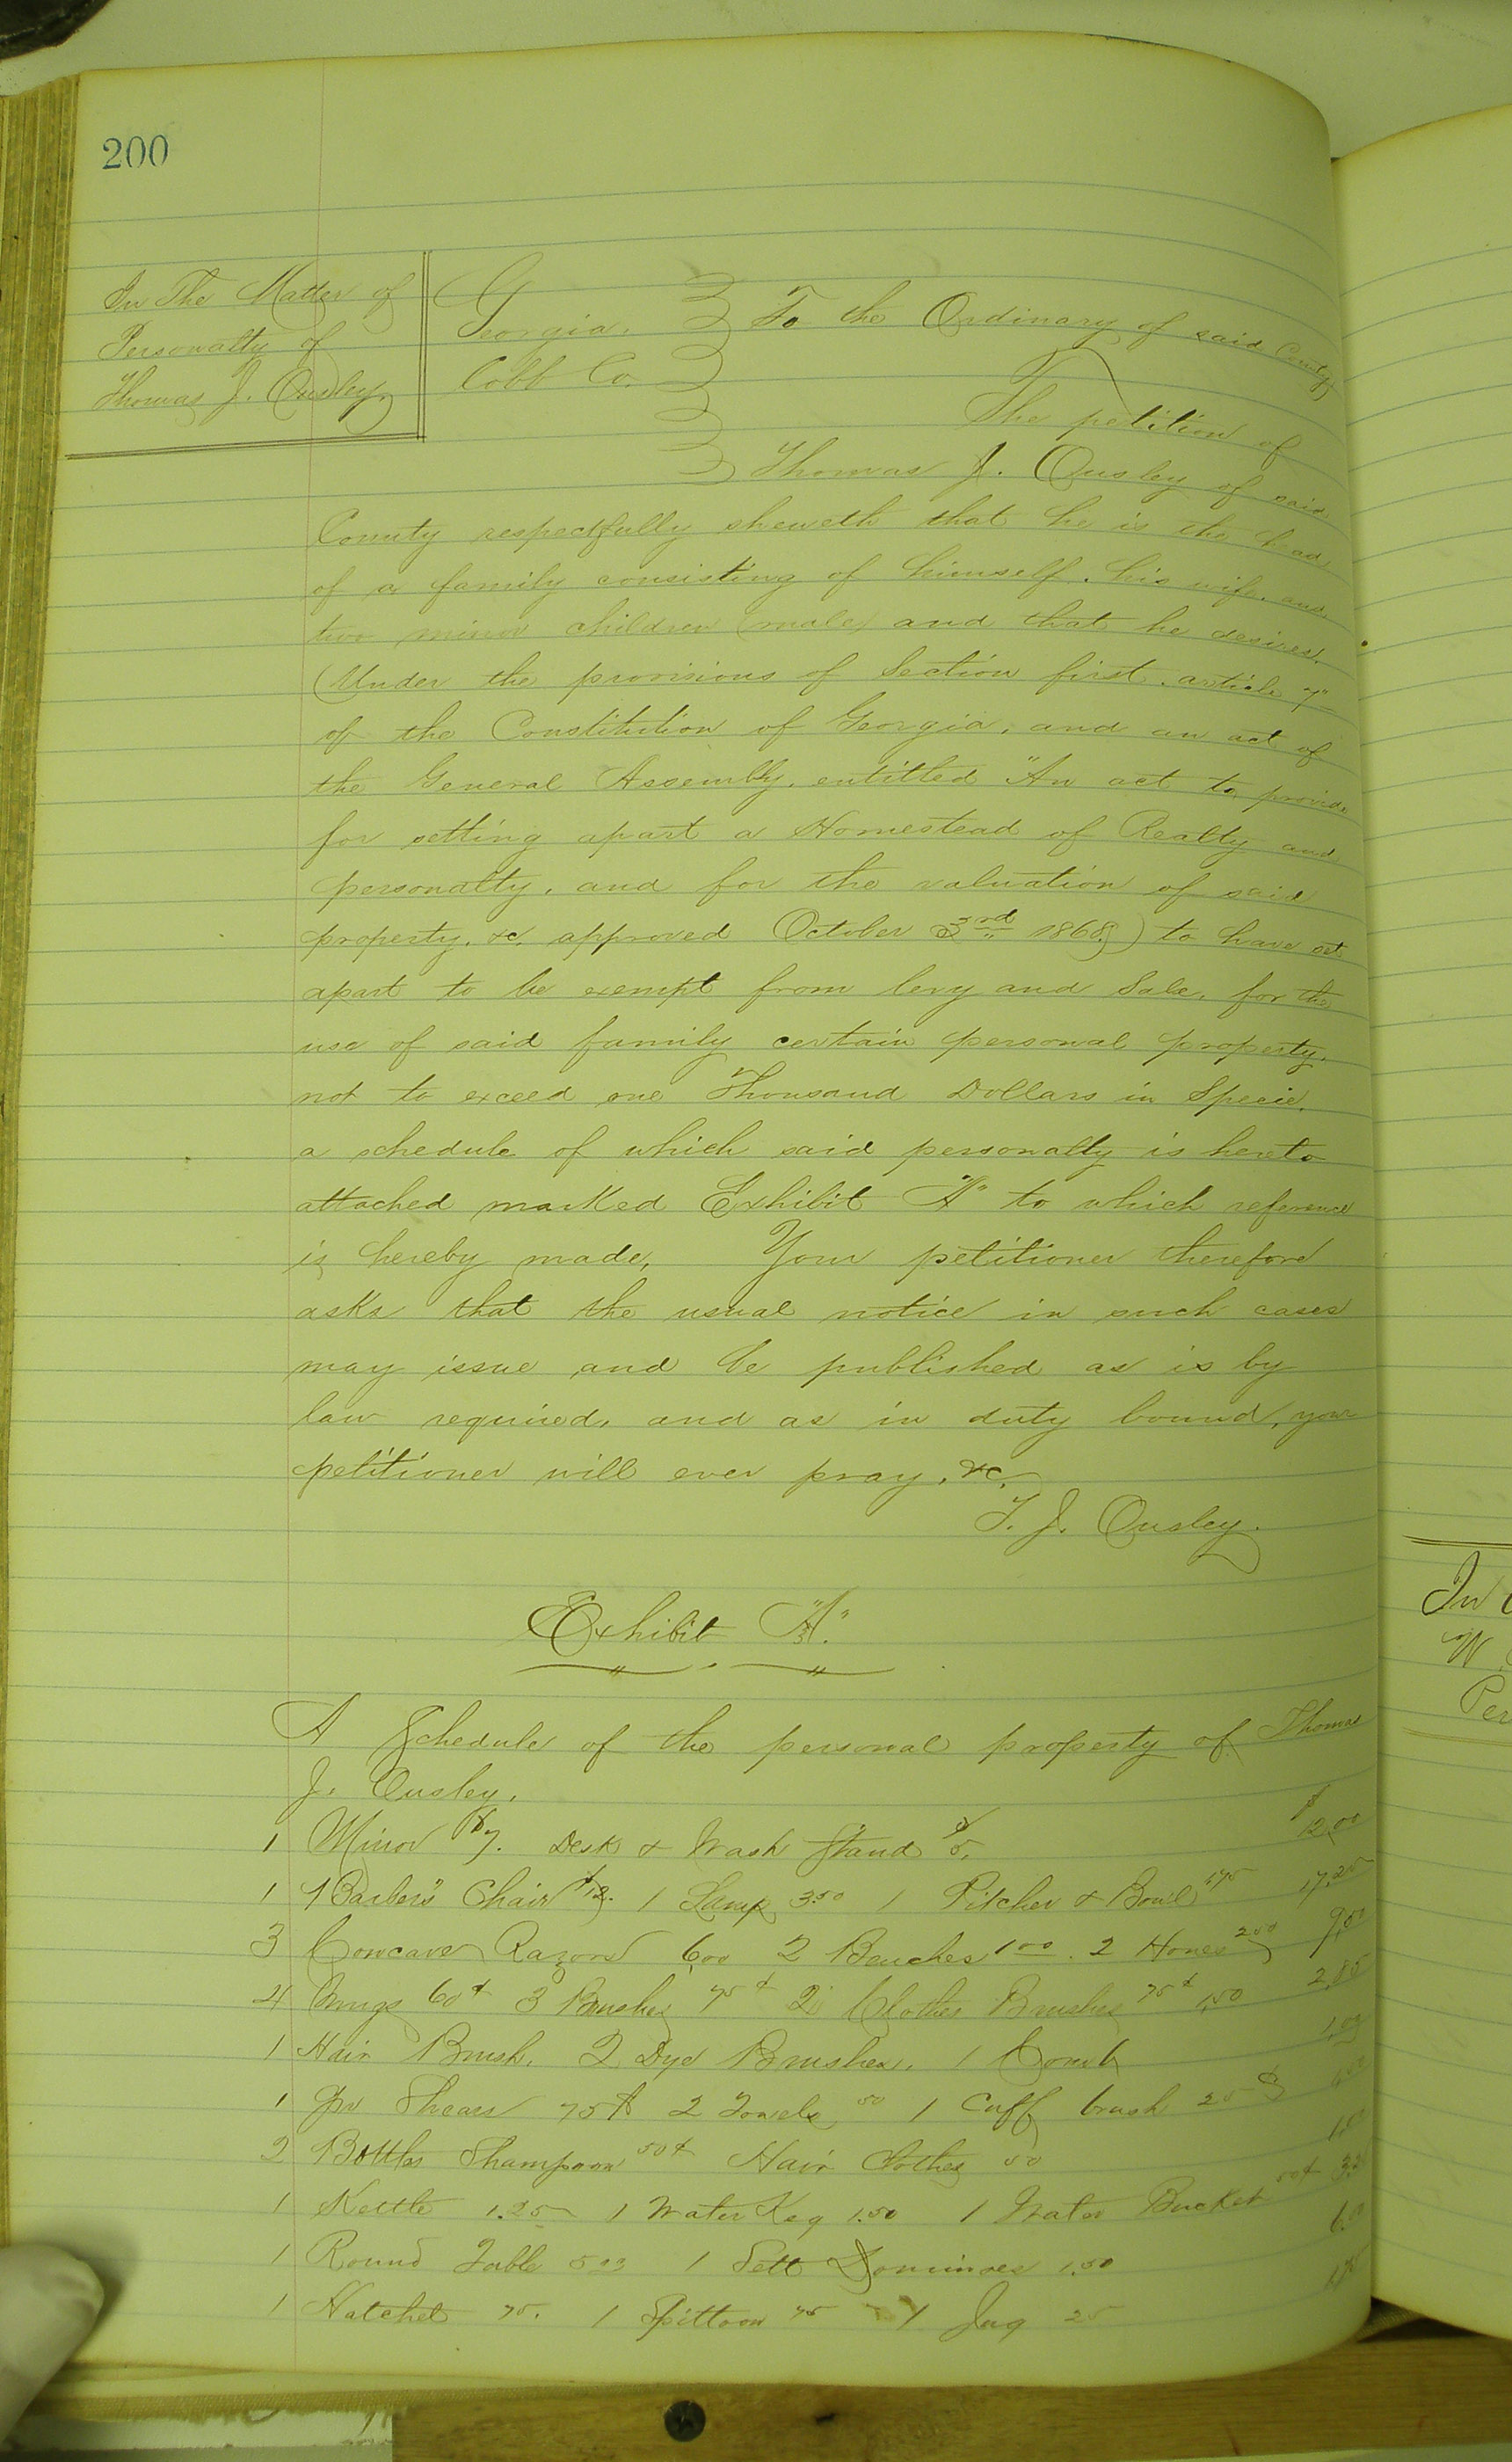 200
In The Matter of
Personalty of
Thomas J. Ousley.
Georgia. To the Ordinary of said County
Cobb Co.
The petition of
Thomas J. Ousley of said
County respectfully sheweth that he is the head
of a family consisting of himself, his wife, and
two minor children (male) and that he desires,
(Under the provisions of Section first, article 7"
of the Constitution of Georgia, and an act of
the General Assembly, entitled "An act to provide
for setting apart a Homestead of Realty and
personalty, and for the valuation of said
property, &c. approved October 3rd 1868,) to have set
apart to be exempt from levy and Sale, for the
use of said family certain personal property,
not to exceed one Thousand Dollars in Specie,
a schedule of which said personalty is hereto
attached marked Exhibit "A" to which reference
is hereby made, Your petitioner therefore
asks that the usual notice in such cases
may issue and be published as is by
law required, and as in duty bound, your
petitioner will ever pray, &c,
T. J. Ousley.
Exhibit "A."
A Schedule of the personal property of Thomas
J. Ousley.
1 Mirror $7. Desk & Wash Stand $5. $12,00
1 1 Barber's Chair $12. 1 Lamp 3.50 1 Pitcher & Bowl 1,75 17,25
3 Concave Razors 6,00 2 Benches 1 00. 2 Hones 2 00 9,00
4 Mugs 60¢ 3 Brushes 75¢ 2 Clothes Brushes 75¢ 1,50 2,85
1 Hair Brush, 2 Dye Brushes, 1 Comb 1,00
1 Pr Shears 75¢ 2 Towels 50 1 Cuff brush 25¢
2 Bottles Shampoon 50¢ Hair Clothes 50 1,00
1 Kettle 1.25 1 Water Keg 1.50 1 Water Bucket 50¢
1 Round Table 1 Sett Dominoes 1.50
1 Hatchet 75. 1 Spittoon 75 1 Jug 25
In
W.
Per